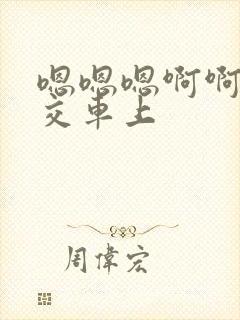 嗯嗯嗯啊啊
交车上
周偉宏